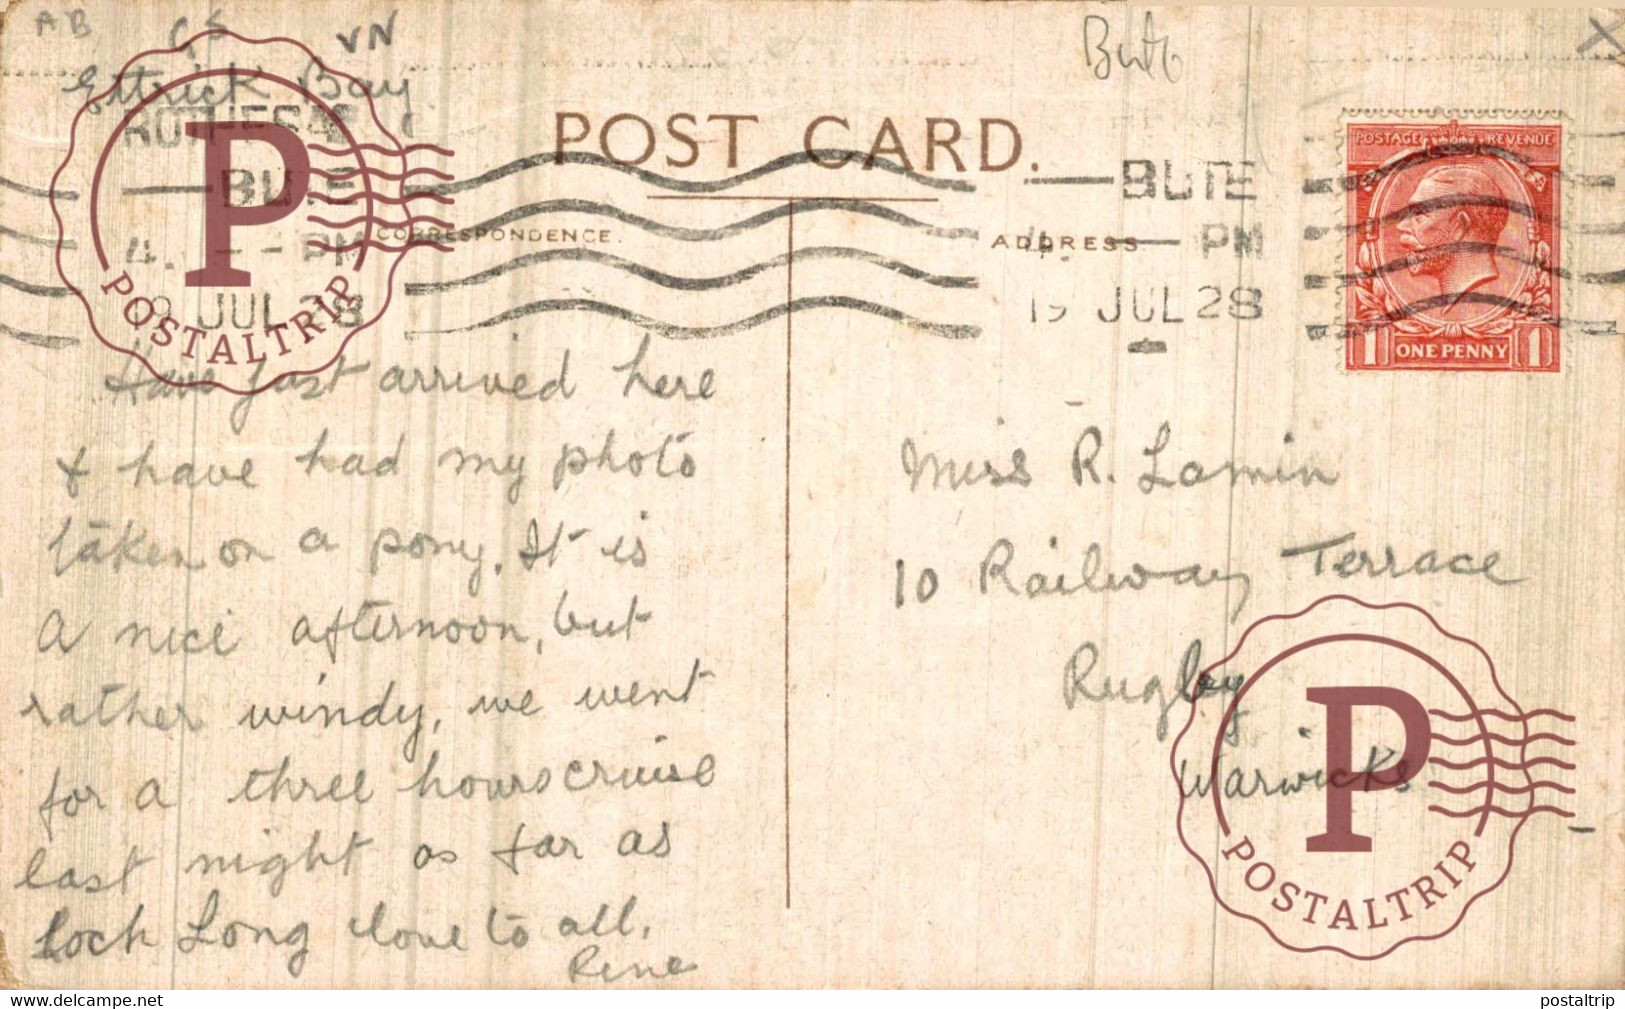 AB
VN
Bute
Ettrick Bay
ROTHESAY
BUTE
4. - PM
9 JUL 28
POST CARD.
CORRESPONDENCE.
ADDRESS
BUTE
4. PM
19 JUL 28
POSTAGE REVENUE
1 ONE PENNY 1
Have just arrived here
& have had my photo
taken on a pony. It is
a nice afternoon, but
rather windy, we went
for a three hours cruise
last night as far as
Loch Long love to all.
Rene
Miss R. Lamin
10 Railway Terrace
Rugby
Warwicks
P
POSTALTRIP
P
POSTALTRIP
postaltrip.delcampe.net
postaltrip